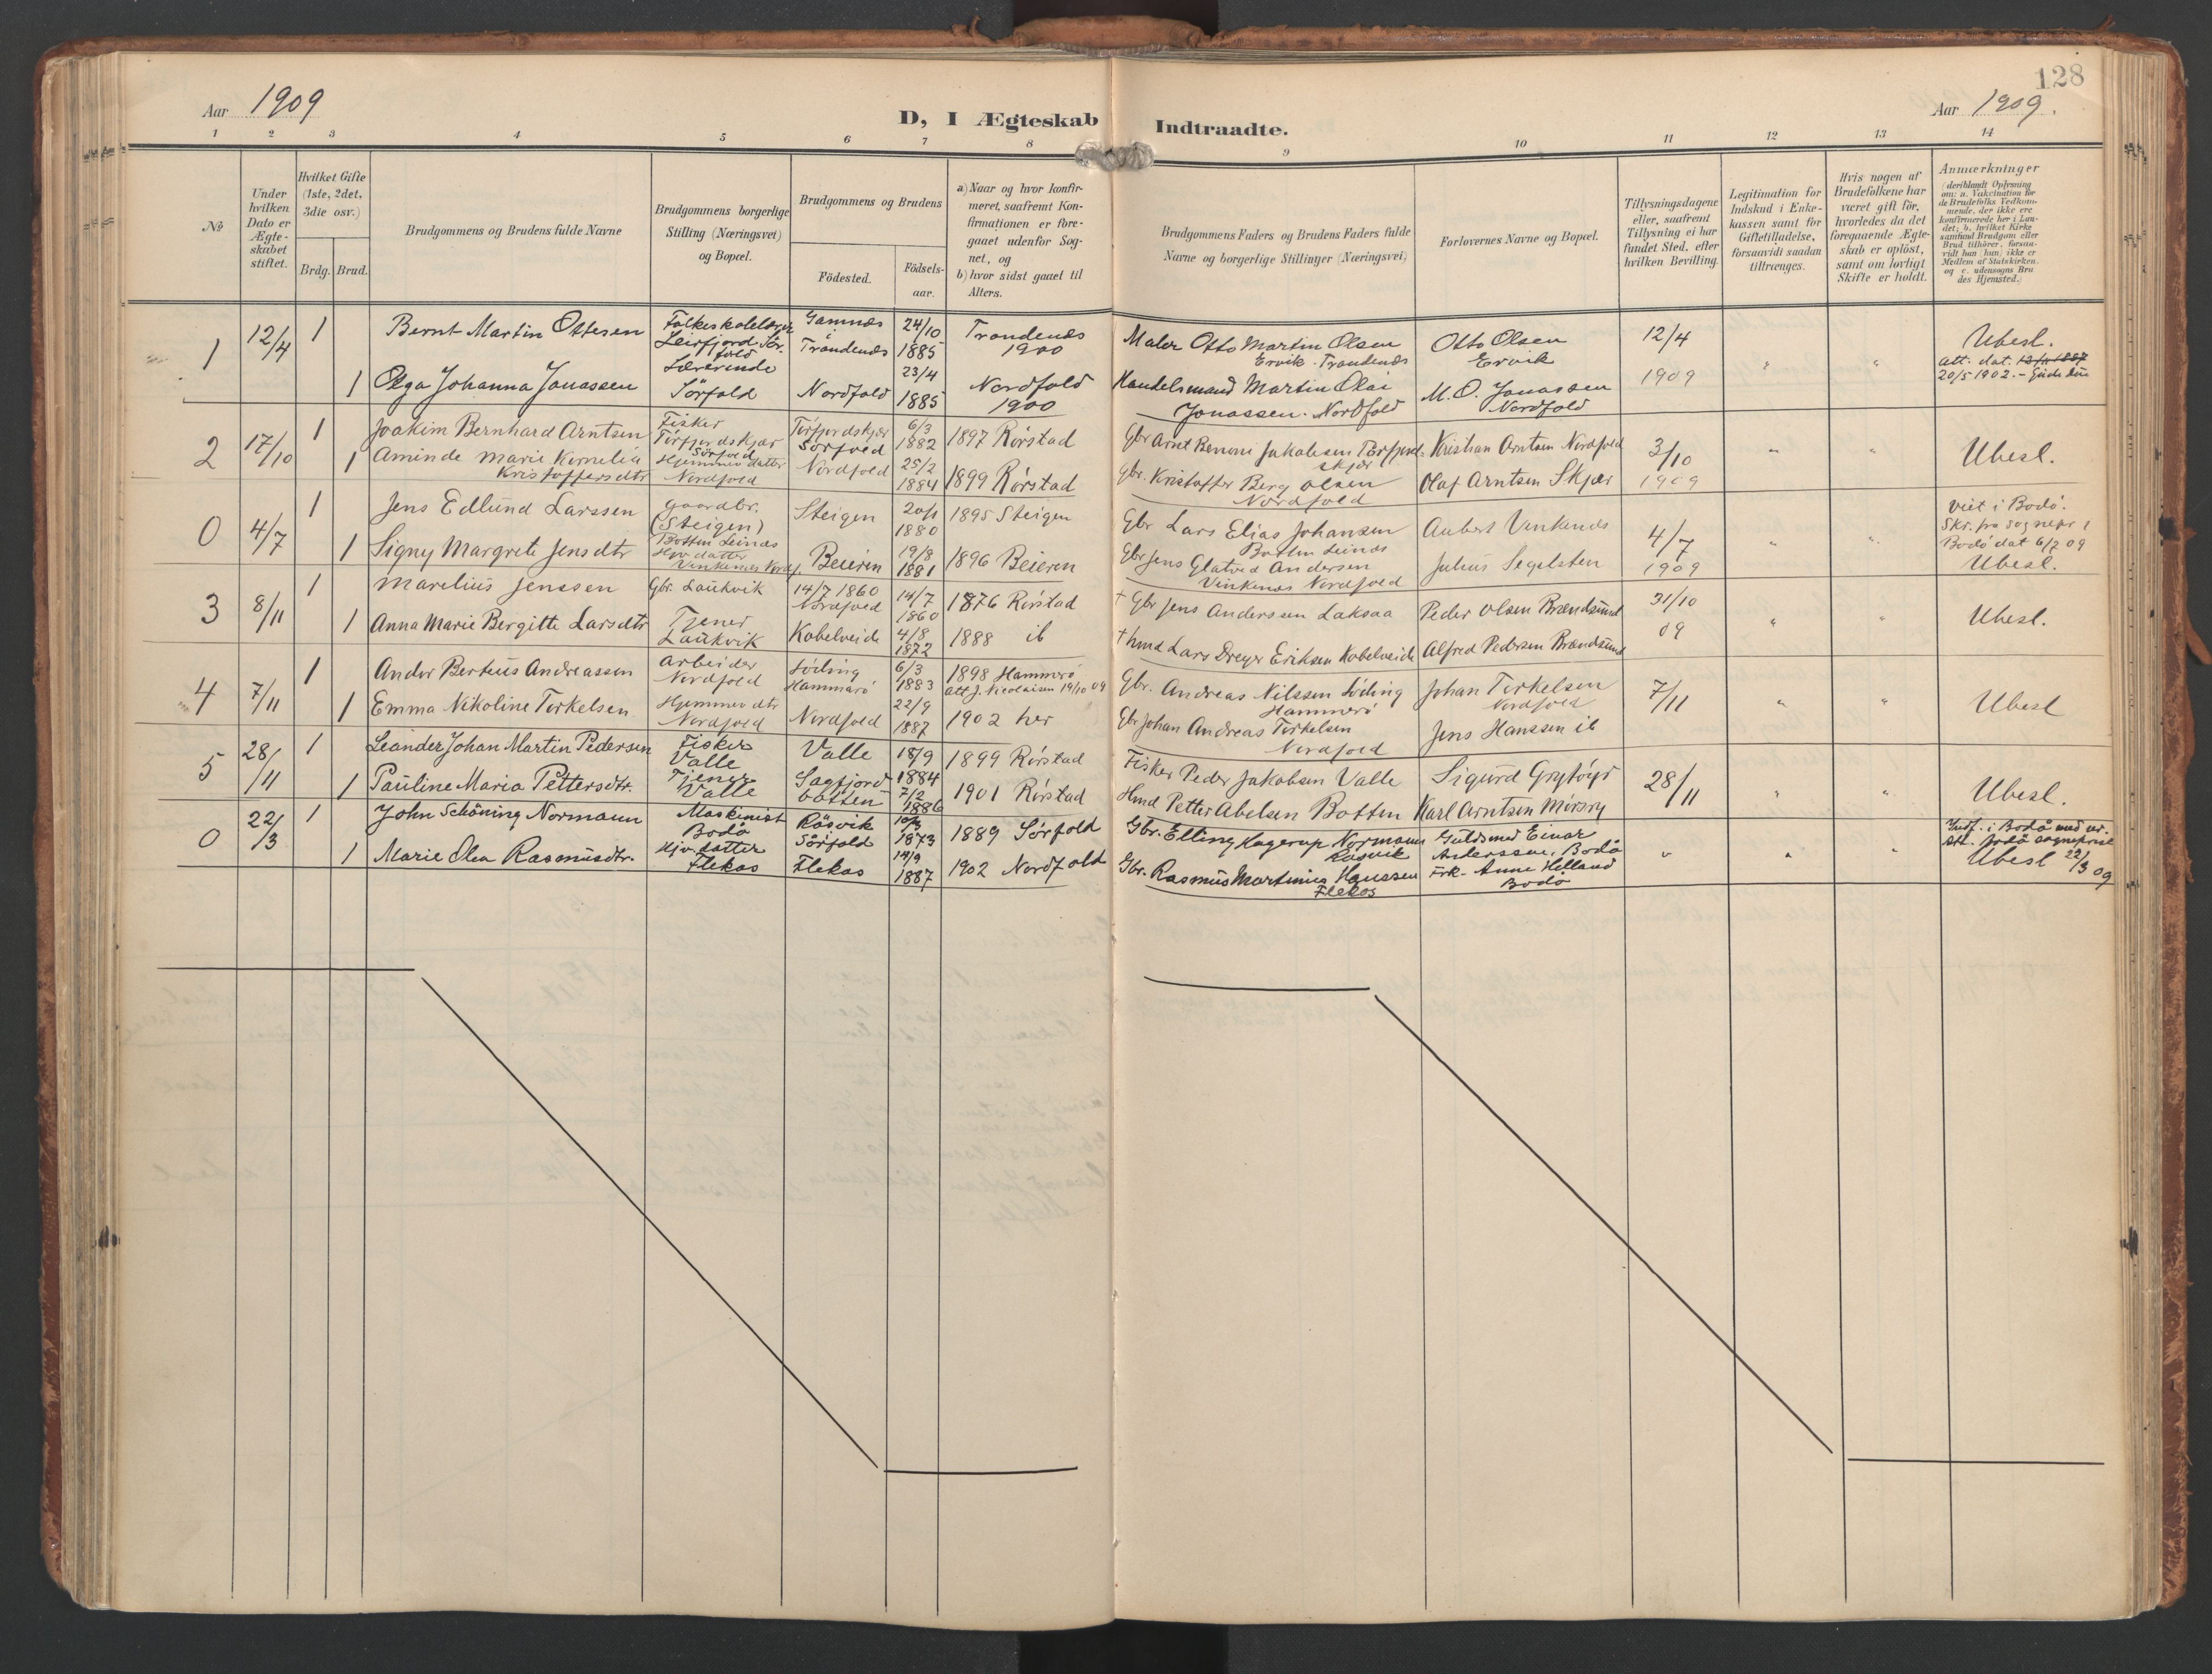 128
Aar 1909
D, I Ægteskab Indtraadte.
Aar 1909.
1 2 3 4 5 6 7 8 9 10 11 12 13 14
№
Under hvilken Dato er Ægte-skabet stiftet.
Hvilket Gifte (1ste, 2det, 3die osv.)
Brdg. Brud.
Brudgommens og Brudens fulde Navne
Brudgommens borgerlige Stilling (Næringsvei) og Bopæl.
Brudgommens og Brudens
Födested.
Födsels-aar.
a) Naar og hvor konfir-meret, saafremt Kon-firmationen er fore-gaaet udenfor Sog-net, og
b) hvor sidst gaaet til Alters.
Brudgommens Faders og Brudens Faders fulde Navne og borgerlige Stillinger (Næringsvei)
Forlovernes Navne og Bopæl.
Tillysningsdagene eller, saafremt Tillysning ei har fundet Sted, efter hvilken Bevilling.
Legitimation for Indskud i Enke-kassen samt for Giftetilladelse, forsaavidt saadan tiltrænges.
Hvis nogen af Brudefolkene har været gift för, hvorledes da det foregaaende Ægte-skab er oplöst, samt om lovligt Skifte er holdt.
Anmærkninger
(deriblandt Oplysning om: a. Vakcination for de Brudefolks Vedkom-mende, der ikke ere konfirmerede her i Lan-det; b. hvilket Kirke samfund Brudgom eller Brud tilhörer, forsaa-vidt han (hun) ikke er Medlem af Statskirken, og c. udensogns Bru des Hjemsted.)
1 12/4 1 Bernt Martin Ottesen Folkeskolelærer Leirfjord Sör-fold Gamnes Trondenes 24/10 1885 Trondenes 1900 Maler Otto Martin Olsen Ervik. Trondenes Otto Olsen Ervik 12/4 1909 " " Ubesl.
att. dat.
20/5 1902. -
1 Olga Johanna Jonassen Lærerinde Sörfold Nordfold 23/4 1885 Nordfold 1900 Handelsmand Martin Olai Jonassen. Nordfold M. O. Jonassen Nordfold
2 17/10 1 Joakim Bernhard Arntsen Fisker Törfjordskjær Sörfold Törfjordskjær Sörfold 6/3 1882 1897 Rörstad Gbr Arnt Benoni Jakobsen Törfjord-skjær Kristian Arntsen Nordfold 3/10 1909 " " Ubesl.
1 Aminde Marie Kornelia Kristoffersdtr Hjemmev datter Nordfold Nordfold 25/2 1884 1899 Rörstad Gbr. Kristoffer Berg Olsen Nordfold Olaf Arntsen Skjær
0 4/7 1 Jens Edlund Larssen Gaardbr. (Steigen) Botten Leines Steigen 20/1 1880 1895 Steigen Gbr Lars Elias Johansen Botten Leines Aubert Vinkenes 4/7 1909 " " Viet i Bodö.
Skr. fra sognepr i
Bodö dat 6/7 09
Ubesl.
1 Signy Margrete Jensdtr Hjv datter Vinkenes Nordf. Beieren 19/8 1881 1896 Beieren Gbr Jens Glatved Andersen Vinkenes Nordfold Julius Segelsten
3 8/11 1 Marelius Jenssen Gbr. Laukvik 14/7 1860 Nordfold 14/7 1860 1876 Rörstad † Gbr Jens Anderssen Laksaa Peder Olsen Brændsund 31/10 09 " " Ubesl.
1 Anna Marie Bergitte Larsdtr Tjener Laukvik Kobelveide 4/8 1872 1888 ib † hmd Lars Dreyer Eriksen Kobelveide Alfred Pedersen Brændsund
4 7/11 1 Ander Berteus Andreassen Arbeider Nordfold Löding Hammerö 6/3 1883 1898 Hammerö att J. Nicolaisen 19/10 09 Gbr. Andreas Nilssen Löding Hammerö Johan Torkelsen Nordfold 7/11 " " Ubesl
1 Emma Nikoline Torkelsen Hjemmev dtr Nordfold Nordfold 22/9 1887 1902 her Gbr Johan Andreas Torkelsen Nordfold Jens Hanssen ib
5 28/11 1 Leander Johan Martin Pedersen Fisker Valle Valle 18/9 1884 1899 Rörstad Fisker Peder Jakobsen Valle Sigurd Grytöyr 28/11 " " Ubesl.
1 Pauline Maria Pettersdtr. Tjener Valle Sagfjord botten 7/2 1886 1901 Rörstad Hmd Petter Abelsen Botten Karl Arntsen Mörsry
0 22/3 1 John Schöning Normann Maskinist Bodö Rösvik Sörfold 10/3 1873 1889 Sörfold Gbr. Elling Hagerup Normann Rösvik Guldsmed Einar Anderssen, Bodö " " " Indf. i Bodö med ver.
att. Bodö sogneprest
Ubesl 22/3 09
1 Marie Olea Rasmusdtr. Hjv. datter Flekas Flekas 14/9 1887 1902 Nordfold Gbr. Rasmus Martinus Hanssen Flekos Frk. Anne Holland Bodö